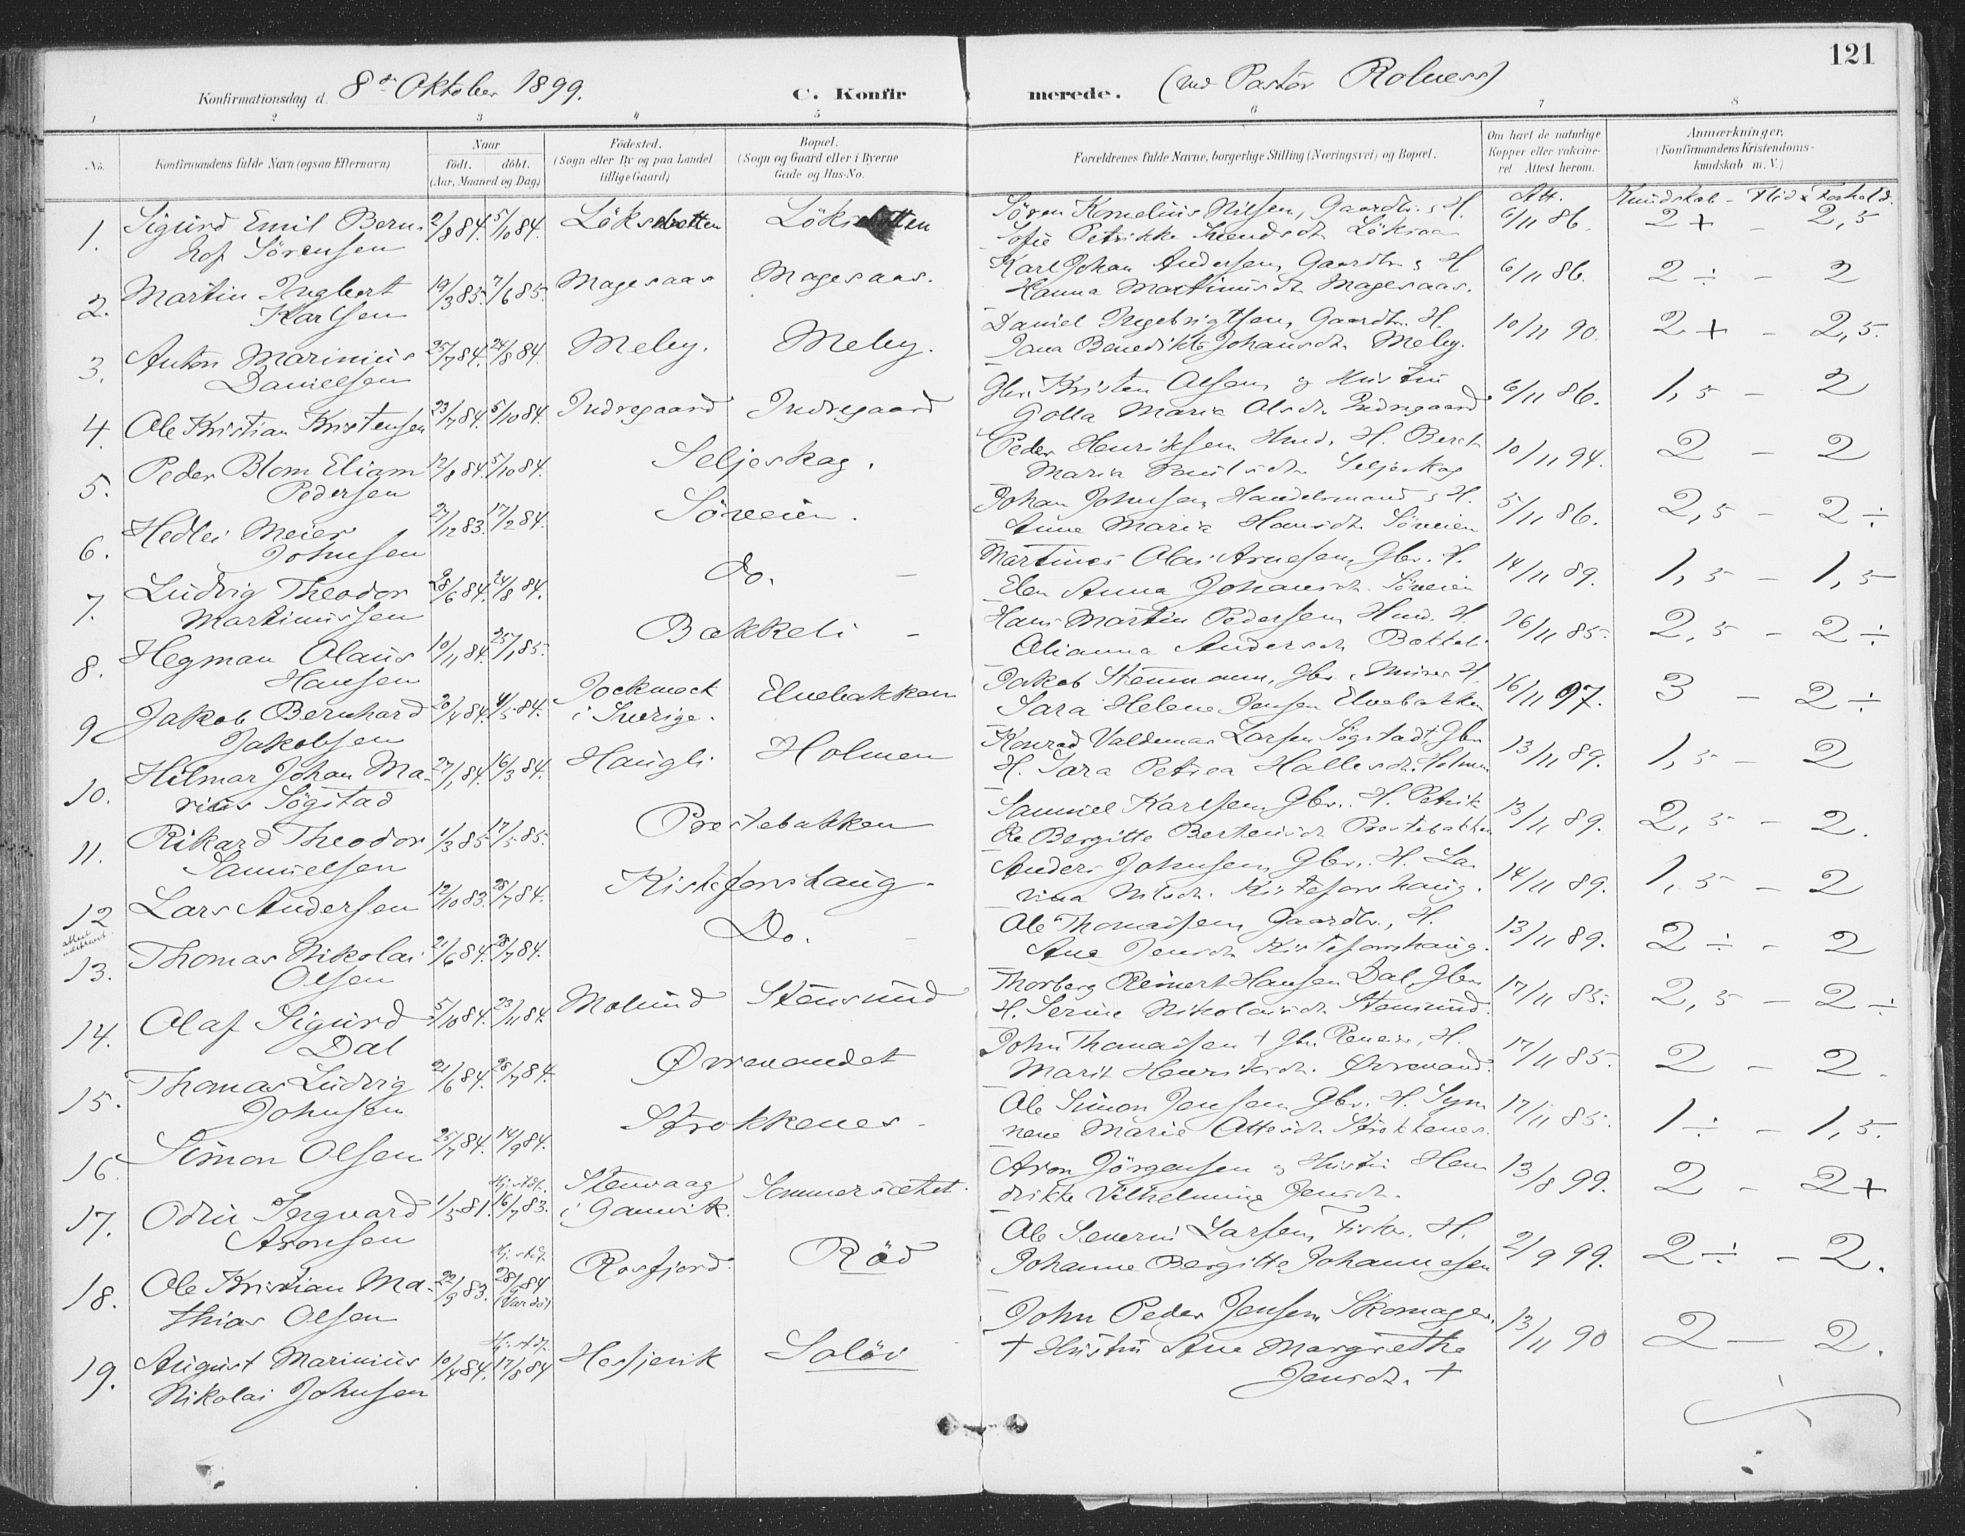 121
Konfirmationsdag d. 8de Oktober 1899. C. Konfirmerede. (ved Pastor Rolness)
1 2 3 4 5 6 7 8
No. Konfirmandens fulde Navn (ogsaa Efternavn) Naar födt. döbt. (Aar, Maaned og Dag) Födested. (Sogn eller By og paa Landet tillige Gaard) Bopæl. (Sogn og Gaard eller i Byerne Gade og Hus-No. Forældrenes fulde Navne, borgerlige Stilling (Næringsvei) og Bopæl. Om havt de naturlige Kopper eller vaccineret Attest herom. Anmærkninger. (Konfirmandens Kristendomskundskab m. V.)
Att. Kundskab - Flid & Forhold.
1. Sigurd Emil Bernhof Sörensen 2/8 84. 5/10 84. Sören Kornelius Nilsen, Gaardbr. & H. Sofie Petrikke 6/11 86. 2+ - 2,5
2. Martin Ingbert Karlsen 19/3 85. 7/6 85. Magesaas Magesaas. Karl Johan Andersen, Gaardbr. & H. Hanna Martinusdt. Magesaas. 6/11 86. 2÷ - 2
3. Anton Marinius Danielsen 25/7 84. 24/8 84. Meby. Meby. Daniel Ingebrigtsen, Gaardbr. H. Jana Benedikte Johansdt. Meby. 10/11 90. 2+ - 2,5.
4. Ole Kristian Kristensen 23/7 84. 5/10 84. Indregaard Indregaard Gbr. Kristen Olsen, og Hustru Golla Maria Olsdt. Indregaard 6/11 86. 1,5 - 2
5. Peder Blom Eliam Pedersen 12/8 84. 5/10 84. Seljeskog. Peder Henriksen Hmd. H. Maria Seljeskog 10/11 94. 2 - 2
6. Hedlei Meier Johnsen 27/12 83. 17/2 84. Söveien. Johan Johnsen, Handelsmand & H. Anne Maria Hansdt. Söveien 5/11 86. 2,5 - 2÷
7. Ludvig Theodor Martinussen 28/6 84. 24/8 84. do. - Martines Olai Arnesen, Gbr. H. Elen Anna Johansdt. Söveien 14/11 89. 1,5 - 1,5
8. Hegman Olaus Hansen 10/11 84. 25/1 85. Bakkeli - Hans Martin Pedersen, Hmd. H. Olianna Andersdt. Bakkeli 26/11 85. 2,5 - 2÷
9 Jakob Bernhard Jakobsen 20/4 84. 4/5 84. Jockmock i Sverige. Elvebakken Jakob Stenmann, Gbr. & Murer H. Sara Helene Jensen Elvebakken 16/11 97. 3 - 2÷
10. Hilmar Johan Marius Sögstad 27/1 84. 16/3 84. Haugli Holmen Konrad Valdemar Larsen Sögstadt Gbr. H. Sara Petrea Hallesdt. Holmen 13/11 89. 1,5 - 2
11. Rikard Theodor Samuelsen 1/3 85. 17/5 85. Prestebakken Samuel Karlsen, Gbr. H. Petrikke Bergitte Prestebakken 13/11 89. 2,5 - 2.
12 Lars Andersen 12/10 83. 28/7 84. Kistefosshaug. Anders Johnsen, Gbr., H. Lavina Nilsdt. Kistefosshaug. 14/11 89. 1,5 - 2
13. Thomas Nikolai Olsen 21/6 84. 28/7 84. Do. - Ole Thomassen, Gaardbr., H. Ane Jensdt. Kistefosshaug. 13/11 89. 2÷ - 2
14. Olaf Sigurd Dal 5/10 84. 23/11 84. Molund Stensund Thorberg Reinert Hansen Dal, Gbr. H. Serine Nikolaisdt. Stensund. 17/11 85. 2,5 - 2÷
15. Thomas Ludvig Johnsen 21/6 84. 28/7 84. Øvrevandet John Thomassen + Gbr. H. Marit Henriksdt. Øvrevand. 17/11 85. 2 - 2.
16. Simon Olsen 25/7 84. 14/9 84. Strokkenes - Ole Simon Jensen Gbr. H. Synnene Marie Ottesdt. Strokkenes. 17/11 85. 1÷ - 1,5.
17. Odin Ingvard Aronsen 1/5 81. Hj. döb. 16/7 83. Stenvaag i Gamvik. Sommersætet. Aron Jörgensen & Hustru Hendrikke Vilhelmine Jensdt. 13/8 99. 2 - 2+
18. Ole Kristian Mathias Olsen 22/9 83. Hj. döb. 28/9 84 (Vardö) Rosfjord. Röd Ole Severin Larsen, Fisker. H. Johanne Bergitte Johannesen 2/9 99. 2÷ - 2.
19. August Marinius Nikolai Johnsen 10/4 84. Hj. döb. 17/8 84 Hesfjevik Salöi John Peder Jensen Skomager. + Hustru Ane Margrethe Jensdt. + 13/11 90 2 - 2.